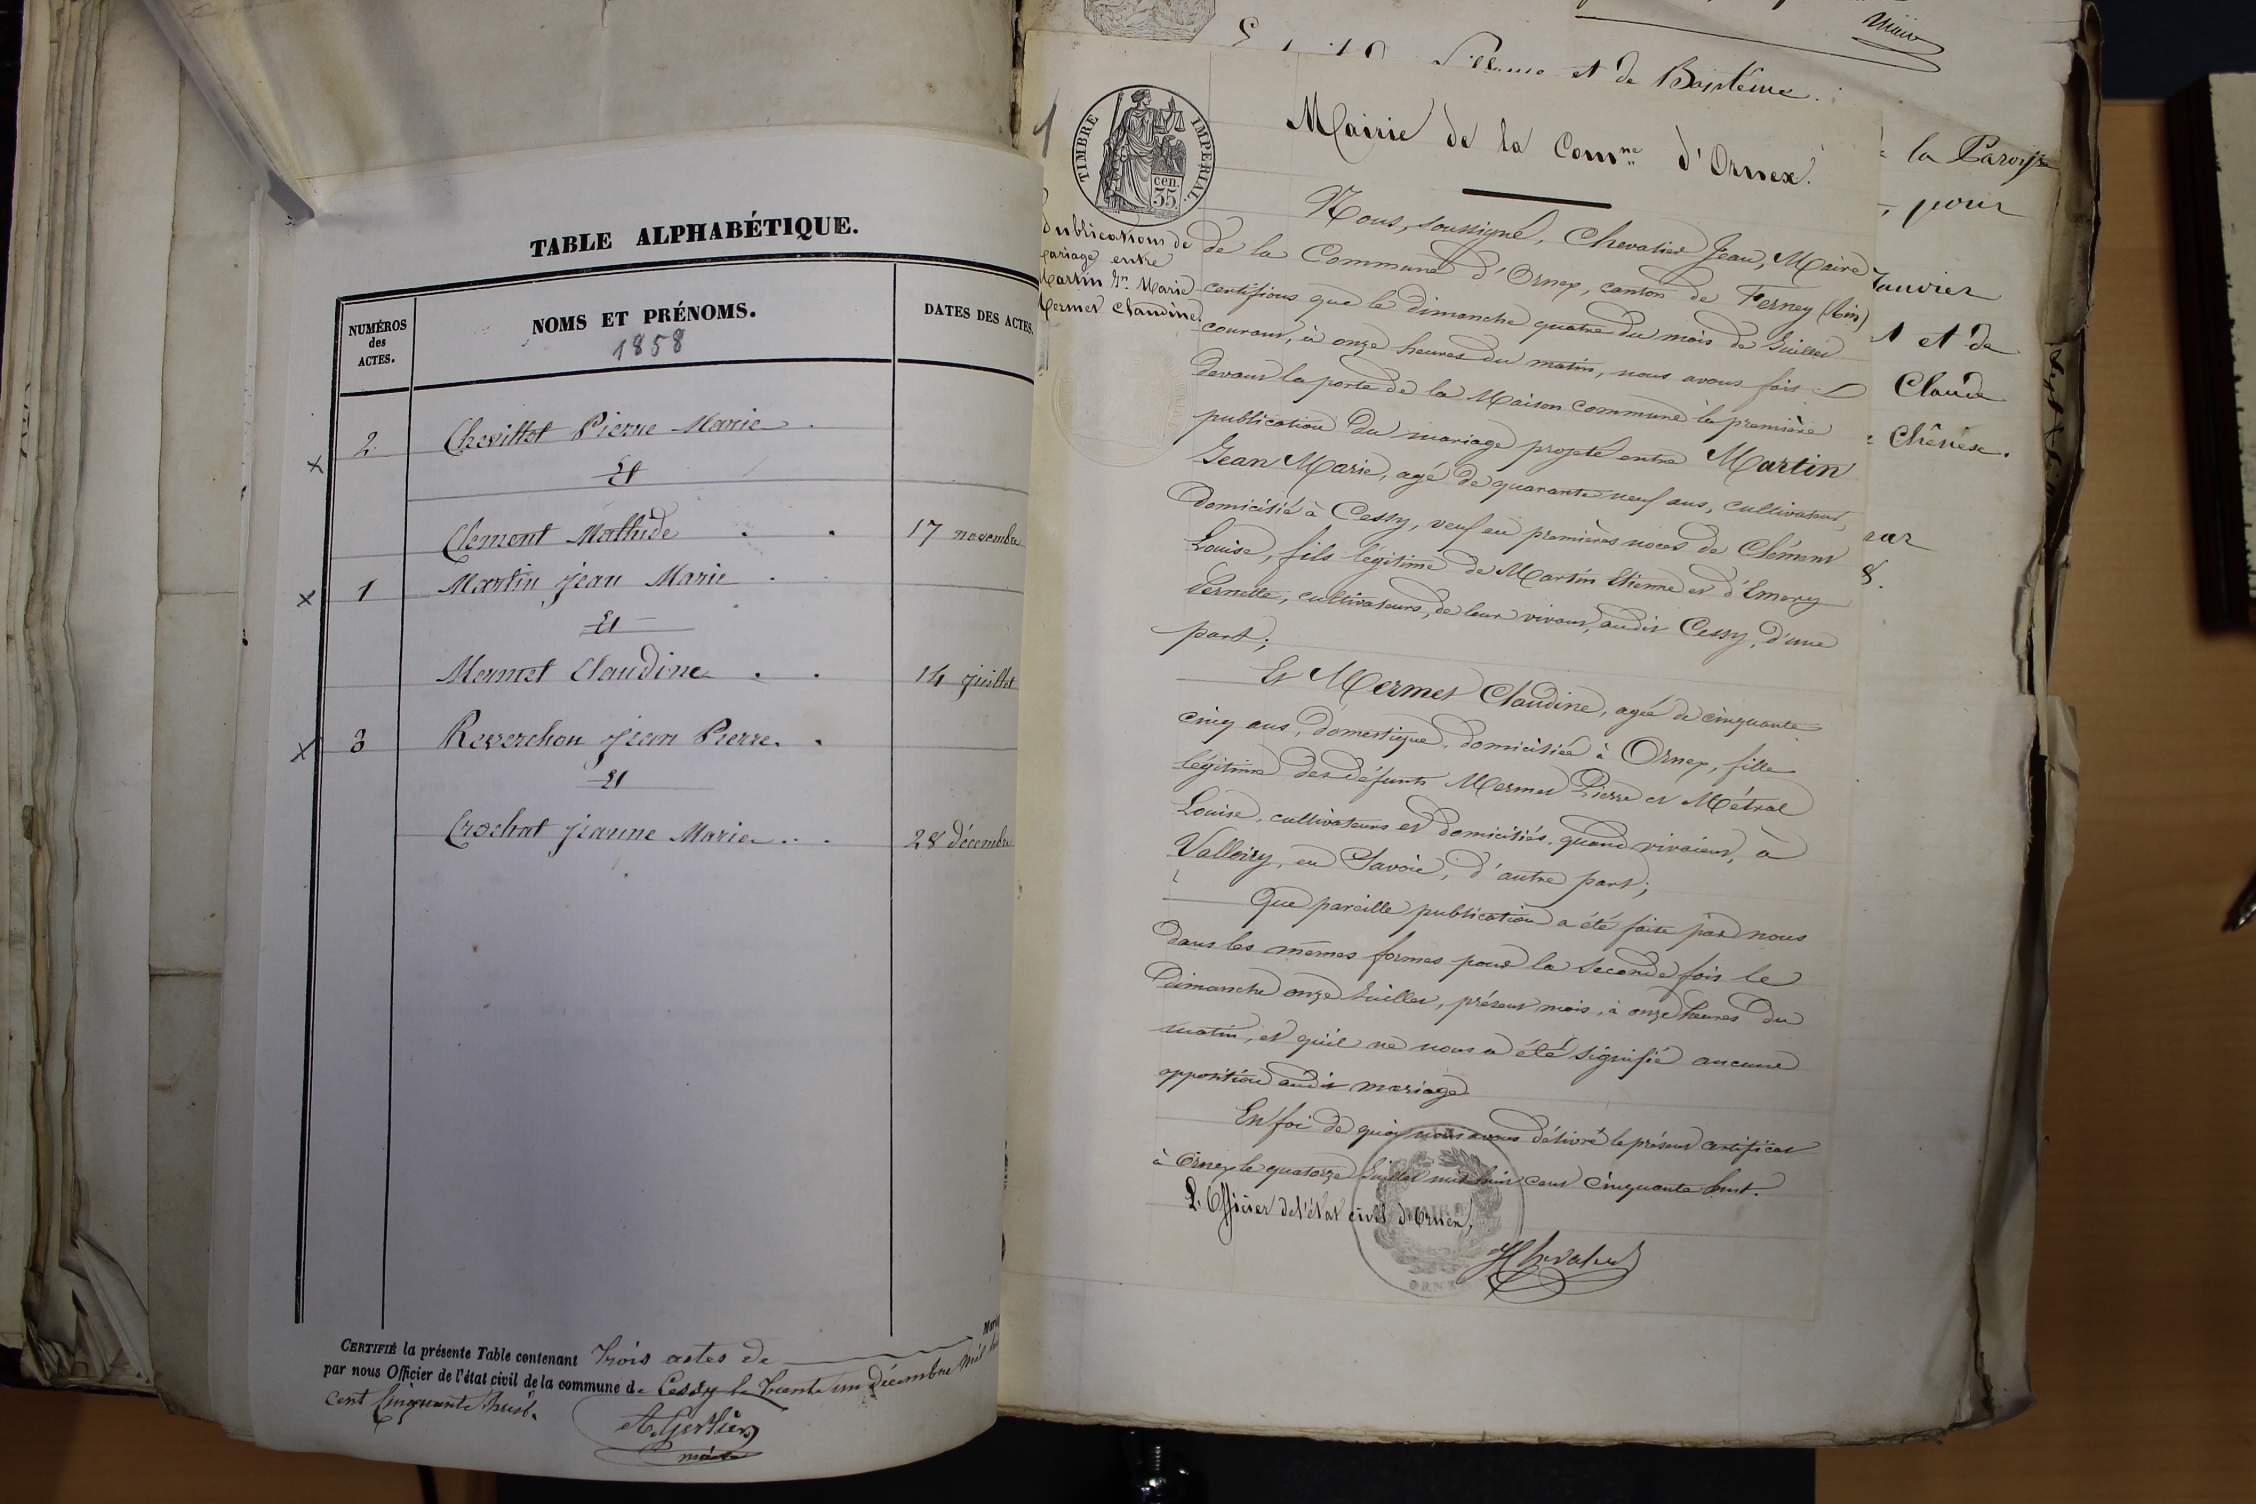 TABLE ALPHABÉTIQUE.
NUMÉROS
des
ACTES.
NOMS ET PRÉNOMS.
1858
DATES DES ACTES.
x 2 Chevillot Pierre Marie
Et
Clement Mathide 17 novembre
x 1 Martin jean Marie
Et
Mermet Claudine 14 juillet
x 3 Reverchon jean Pierre
Et
Crochat jeanne Marie 28 décembre
CERTIFIÉ la présente Table contenant trois actes de
par nous Officier de l'état civil de la commune de Cessy le trente un décembre mil
cent cinquante huit.
A. Gerlier
maire
et de Baptême.
la Paroisse
pour
Janvier
et de
Claude
Chênex.
1
TIMBRE IMPERIAL
cen.
35
Publications de
mariage entre
Martin Jn Marie
Mermet Claudine
Mairie de la Comne d'Ornex.
Nous, soussigné, Chevalier Jean, Maire
de la Commune d'Ornex, canton de Ferney (Ain)
certifions que le dimanche quatre du mois de Juillet
courant, à onze heures du matin, nous avons fait
devant la porte de la Maison commune la première
publication du mariage projeté entre Martin
Jean Marie, agé de quarante neuf ans, cultivateur,
domicilié à Cessy, veuf en premières noces de Clément
Louise, fils légitime de Martin Etienne et d'Emery
Pernette, cultivateurs, de leur vivant, audit Cessy, d'une
part;
Et Mermet Claudine, agée de cinquante
cinq ans, domestique, domiciliée à Ornex, fille
légitime des défunts Mermet Pierre et Métral
Louise, cultivateurs et domiciliés, quand vivaient, à
Valleiry, en Savoie, d'autre part;
Que pareille publication a été faite par nous
dans les mêmes formes pour la seconde fois le
Dimanche onze Juillet, présent mois, à onze heures du
matin, et qu'il ne nous a été signifié aucune
opposition audit mariage
En foi de quoi nous avons délivré le présent certificat
à Ornex le quatorze Juillet mil huit cent cinquante huit.
L'Officier de l'état civil d'Ornex,
JChevalier